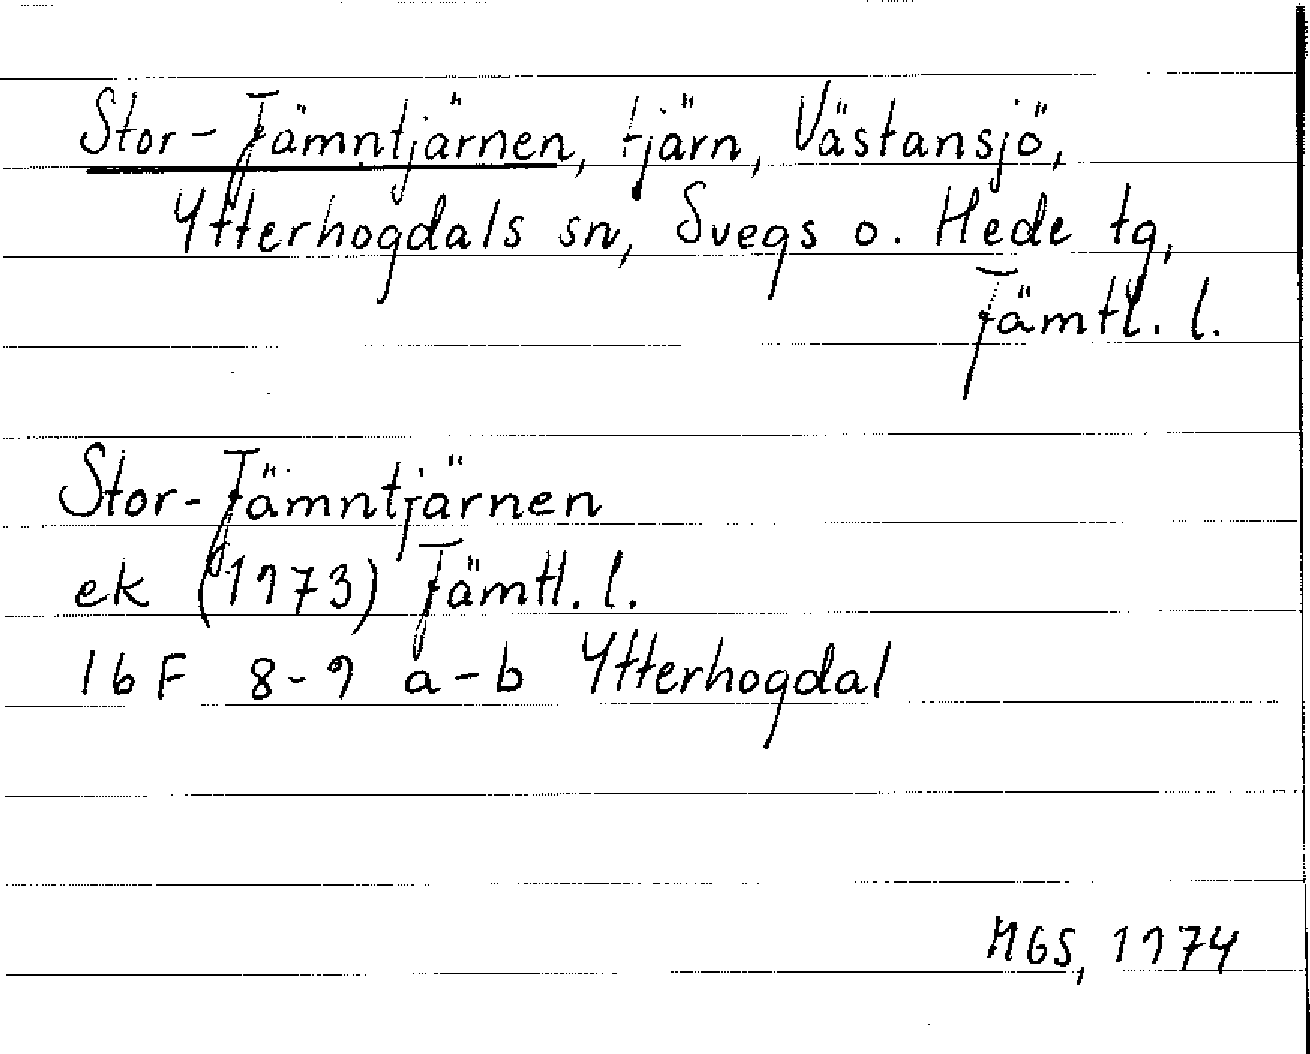 Stor-Jämntjärnen, tjärn, Västansjö,
Ytterhogdals sn, Svegs o. Hede tg,
Jämtl. l.
Stor-Jämntjärnen
ek (1973) Jämtl. l.
16F 8-9 a-b Ytterhogdal
MGS, 1974